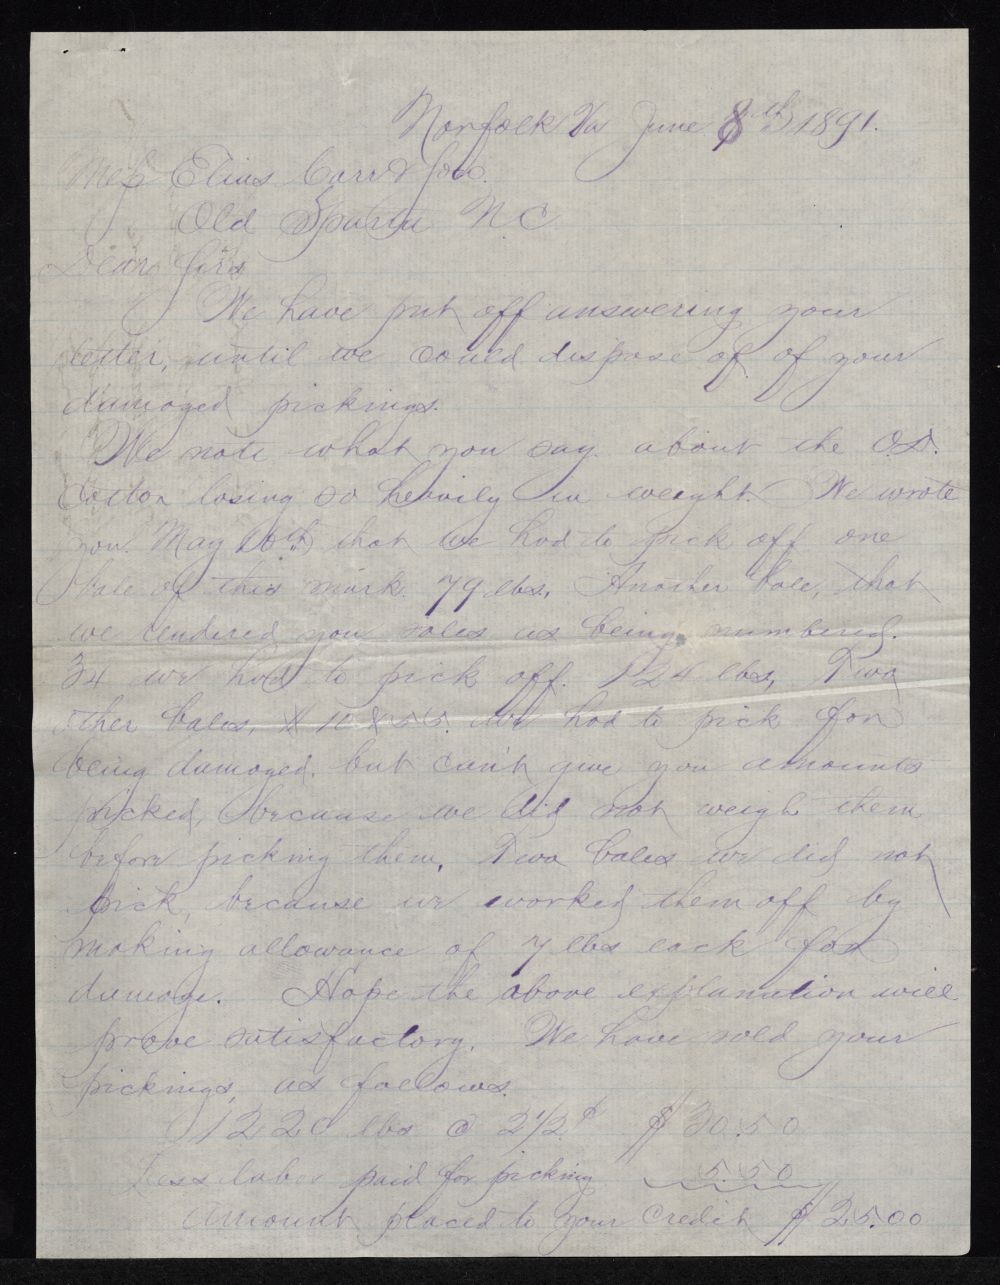 Norfolk Va June 8th 1891.
Mess Elias Carr & Son.
Old Sparta N C
Dear Sirs
We have put off answering your
letter, until we could dispose of of your
damaged pickings.
We note what you say about the O.S.
Cotton losing so heavily in weight. We wrote
you May 16th that we had to pick off one
bale of this mark 79 lbs, Another bale, that
we rendered you sales as being numbered.
34 we had to pick off 124 lbs, Two
other bales, # 10 & 55 we had to pick for
being damaged, but can't give you amounts
picked, because we did not weigh them
before picking them, Two bales we did not
pick, because we worked them off by
making allowance of 7 lbs each for
damage. Hope the above explanation will
prove satisfactory. We have sold your
pickings, as follows.
1220 lbs @ 2 1/2 ¢ $ 30.50
Less labor paid for picking 5.50
Amount placed to your Credit $ 25.00